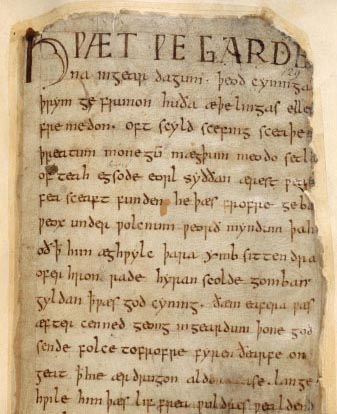 HǷÆT ǷE GARDE
na in gear dagum . þeod cyninga
þrym ge frunon huða æþelingas elle
fre medon . oft scyld scefing sceaþe
þreatum monegū mægþum meodo setla
of teah egsode eorl syððan ærest
fea sceaft funden he þæs frofre geba
ƿeox under ƿolcnum ƿeorð myndum þah
oð þ him æghƿylc þara ymb sittendra
ofer hron rade hyran scolde gomban
gyldan þæt ƿæs god cyning . ðæm eafera ƿæs
æfter cenned geong in geardum þone god
sende folce to frofre fyren ðearfe on
geat þ hie ær drugon aldor ase . lange
hƿile him þæs lif frea ƿuldres ƿealdend